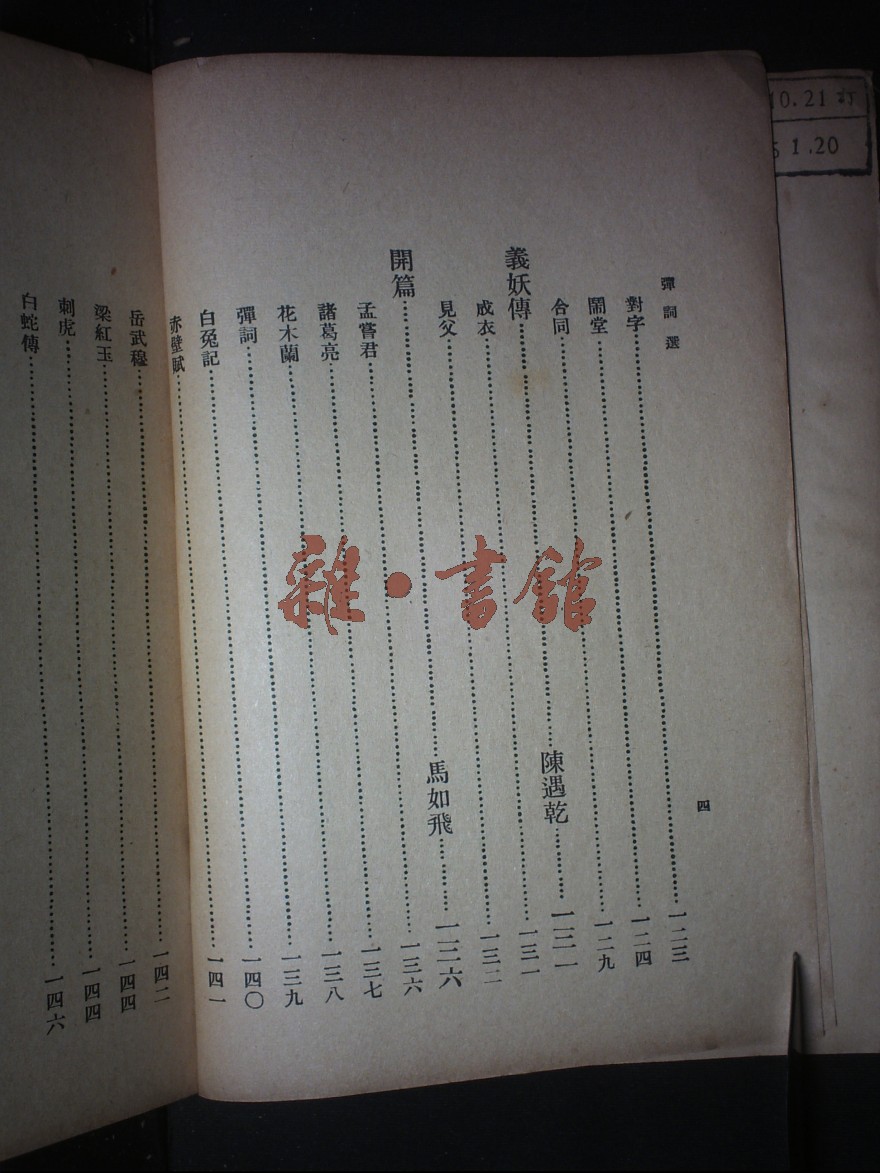 彈詞選
四
對字……一二三
鬧堂……一二四
合同……一二九
義妖傳……陳遇乾……一三一
成衣……一三一
見父……一三二
開篇……馬如飛……一三六
孟嘗君……一三六
諸葛亮……一三七
花木蘭……一三八
彈詞……一三九
白兔記……一四〇
赤壁賦……一四一
岳武穆……一四二
梁紅玉……一四四
刺虎……一四四
白蛇傳……一四六
雜·書館
10.21
1.20